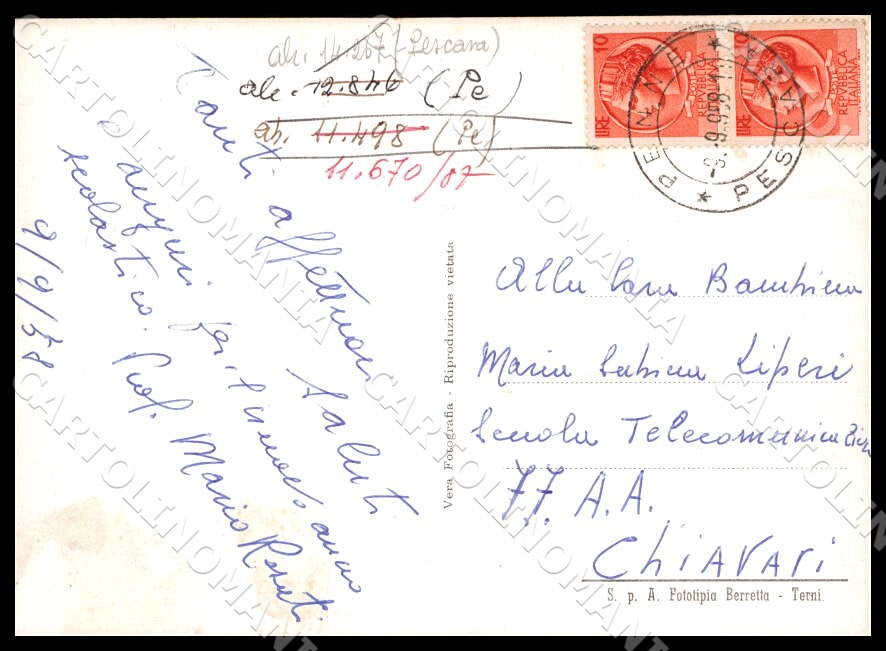 ab. 14.267 (Pescara)
ab. 12.846 (Pe)
ab. 11.498 (Pe)
11.670/87
LIRE 10
POSTE
REPVBBLICA
ITALIANA
LIRE 10
POSTE
REPVBBLICA
ITALIANA
PENNE * PESCARA *
-9.9.958
Tanti affettuosi saluti
e auguri per il nuovo anno
scolastico. Prof. Mario
9/9/58
Vera Fotografia - Riproduzione vietata
Alla Cara Bambina
Maria Sabina Liperi
Scuola Telecomunicazioni
FF. A.A.
CHIAVARI
S. p. A. Fototipia Berretta - Terni.
CARTOLINOMANIA